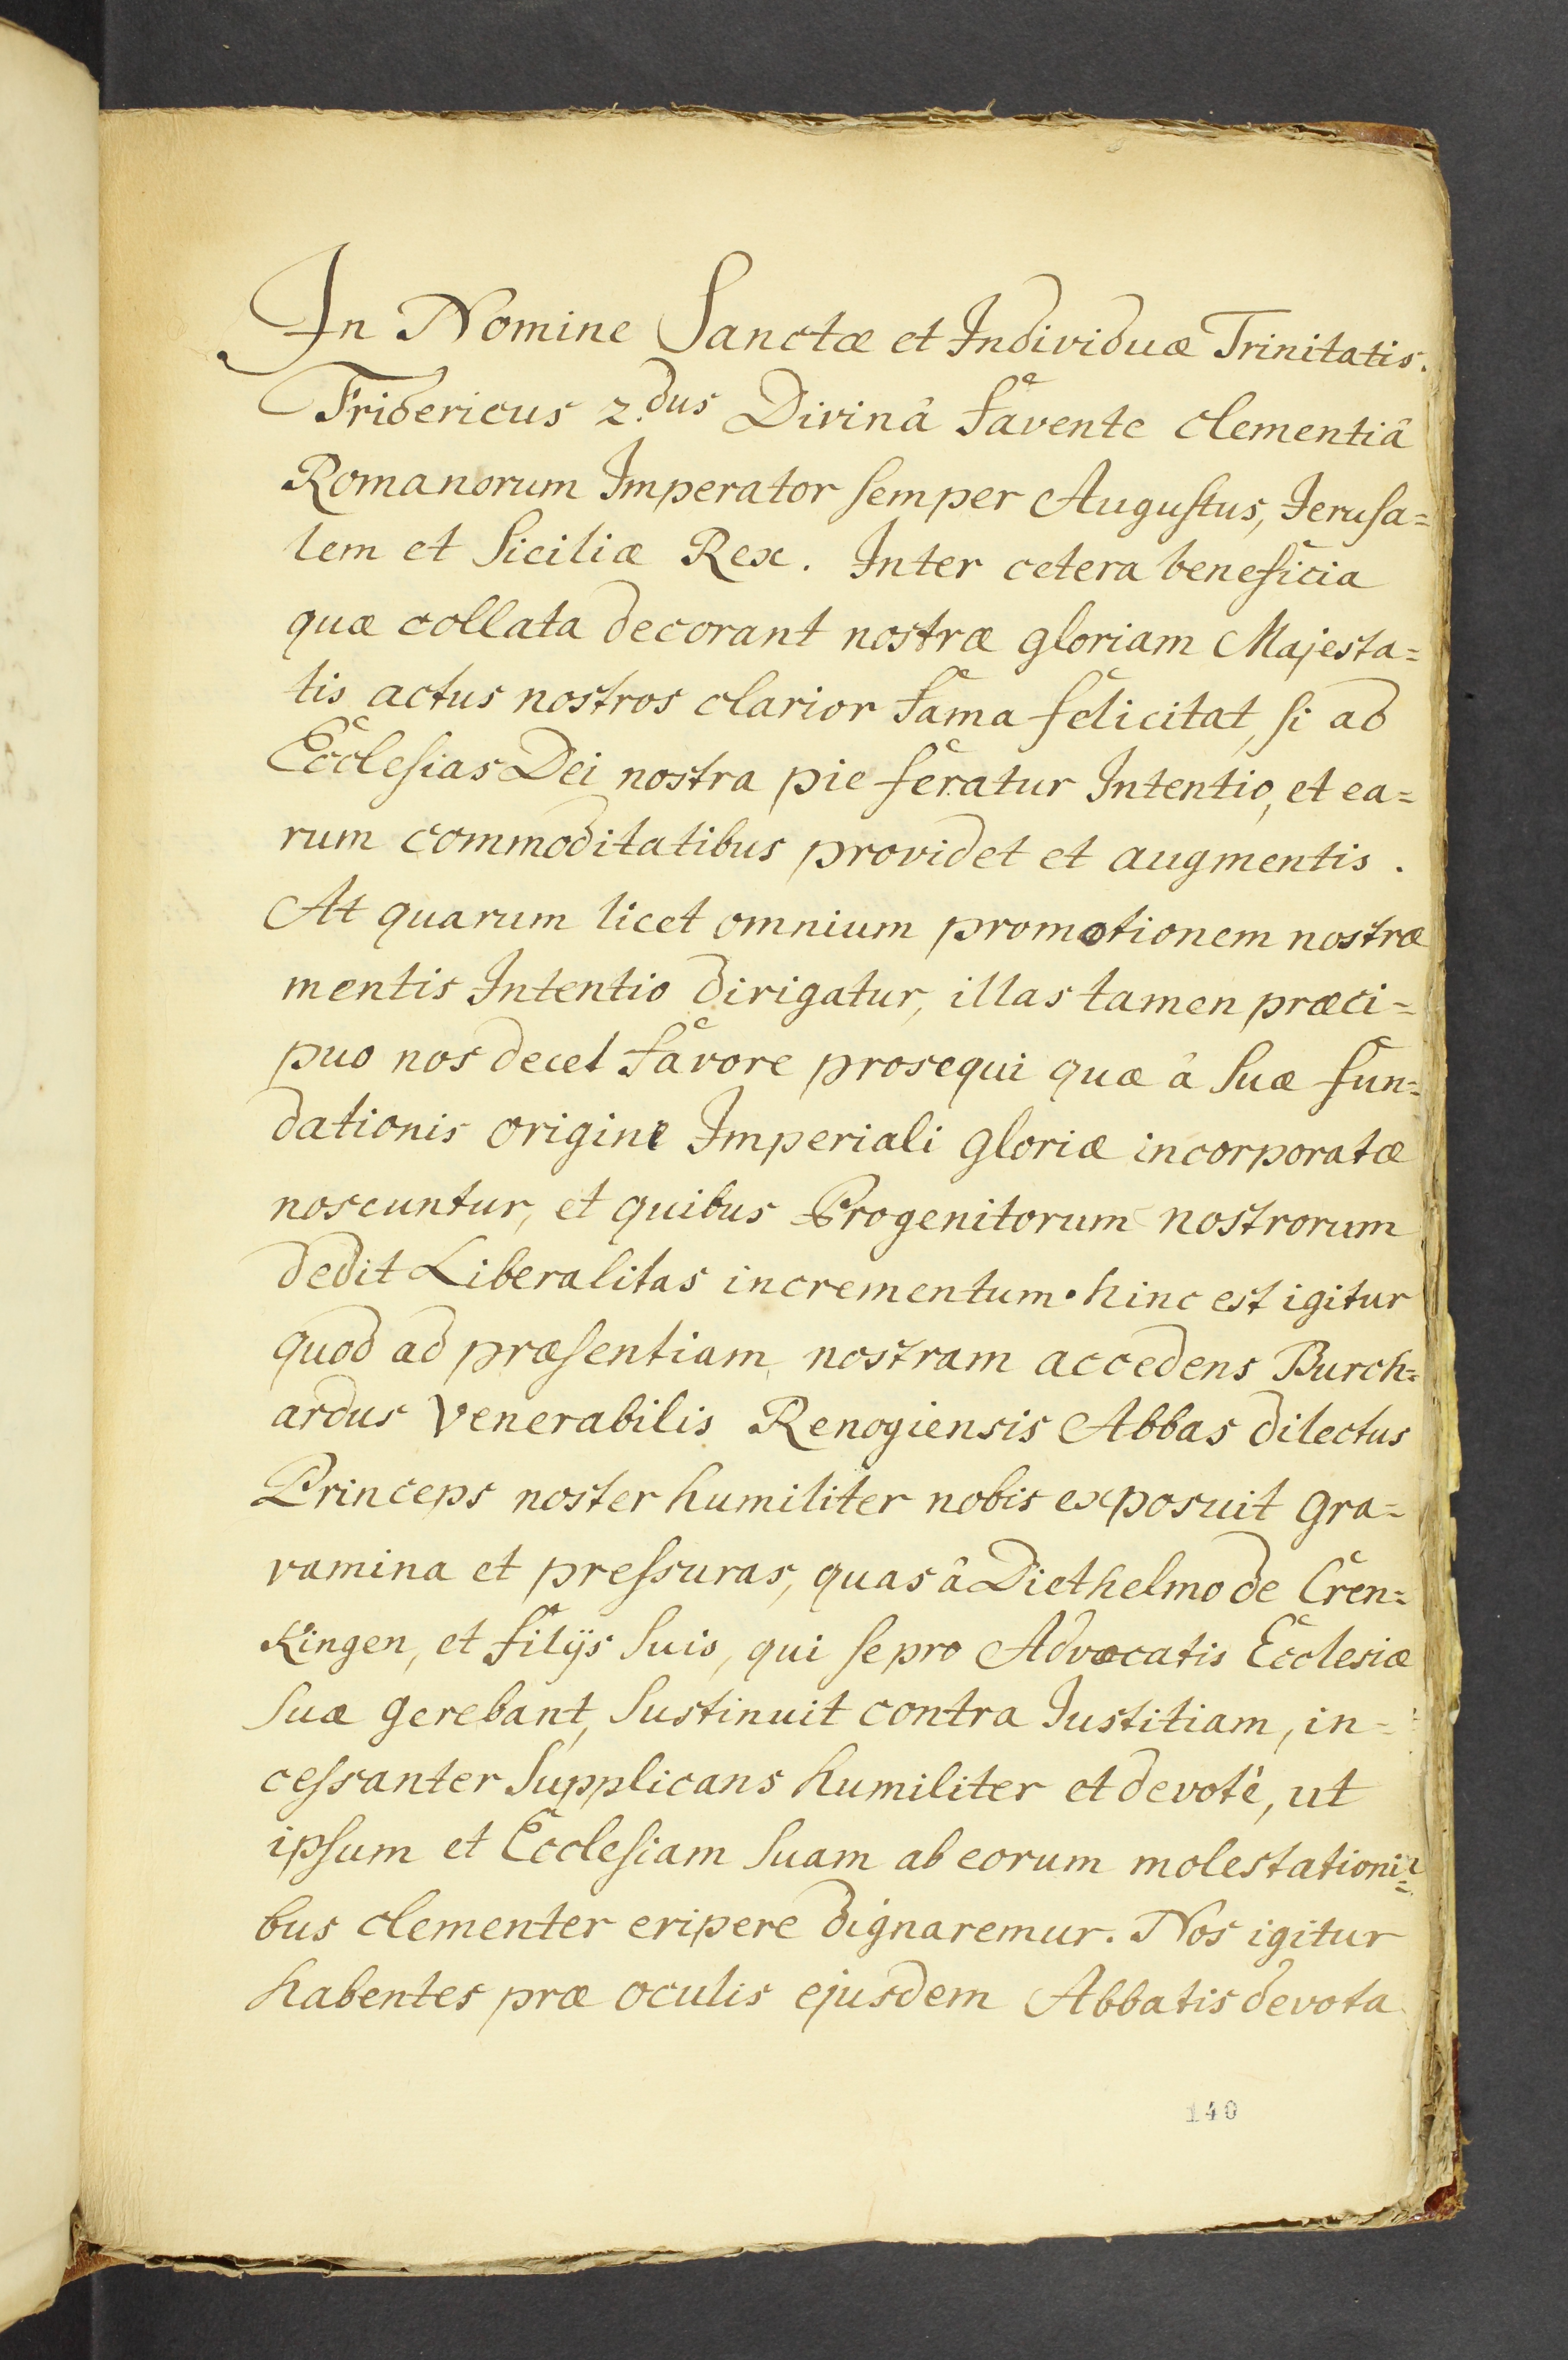 In Nomine Sanctæ et Individuæ Trinitatis.
Fridericus 2.dus Divinâ favente clementiâ
Romanorum Imperator semper Augustus, Jerusa=
lem et Siciliæ Rex. Inter cetera beneficia
quæ collata decorant nostræ gloriam Majesta=
tis actus nostros clarior fama felicitat, si ad
Ecclesias Dei nostra pie feratur Intentio, et ea=
rum commoditatibus providet et augmentis.
At quarum licet omnium promotionem nostræ
mentis Intentio dirigatur, illas tamen præci=
puo nos decet favore prosequi quæ â suæ fun=
dationis origine Imperiali gloriæ incorporatæ
noscuntur, et quibus Progenitorum nostrorum
dedit Liberalitas incrementum. hinc est igitur
quod ad præsentiam nostram accedens Burch=
ardus Venerabilis Renogiensis Abbas dilectus
Princeps noster humiliter nobis exposuit gra=
vamina et pressuras, quas â Diethelmo de Cren=
kingen, et filijs suis, qui se pro Advocatis Ecclesiæ
suæ gerebant, sustinuit contra Justitiam, in=
cessanter supplicans humiliter et devotè, ut
ipsum et Ecclesiam suam ab eorum molestationi=
bus clementer eripere dignaremur. Nos igitur
habentes præ oculis ejusdem Abbatis devota
140